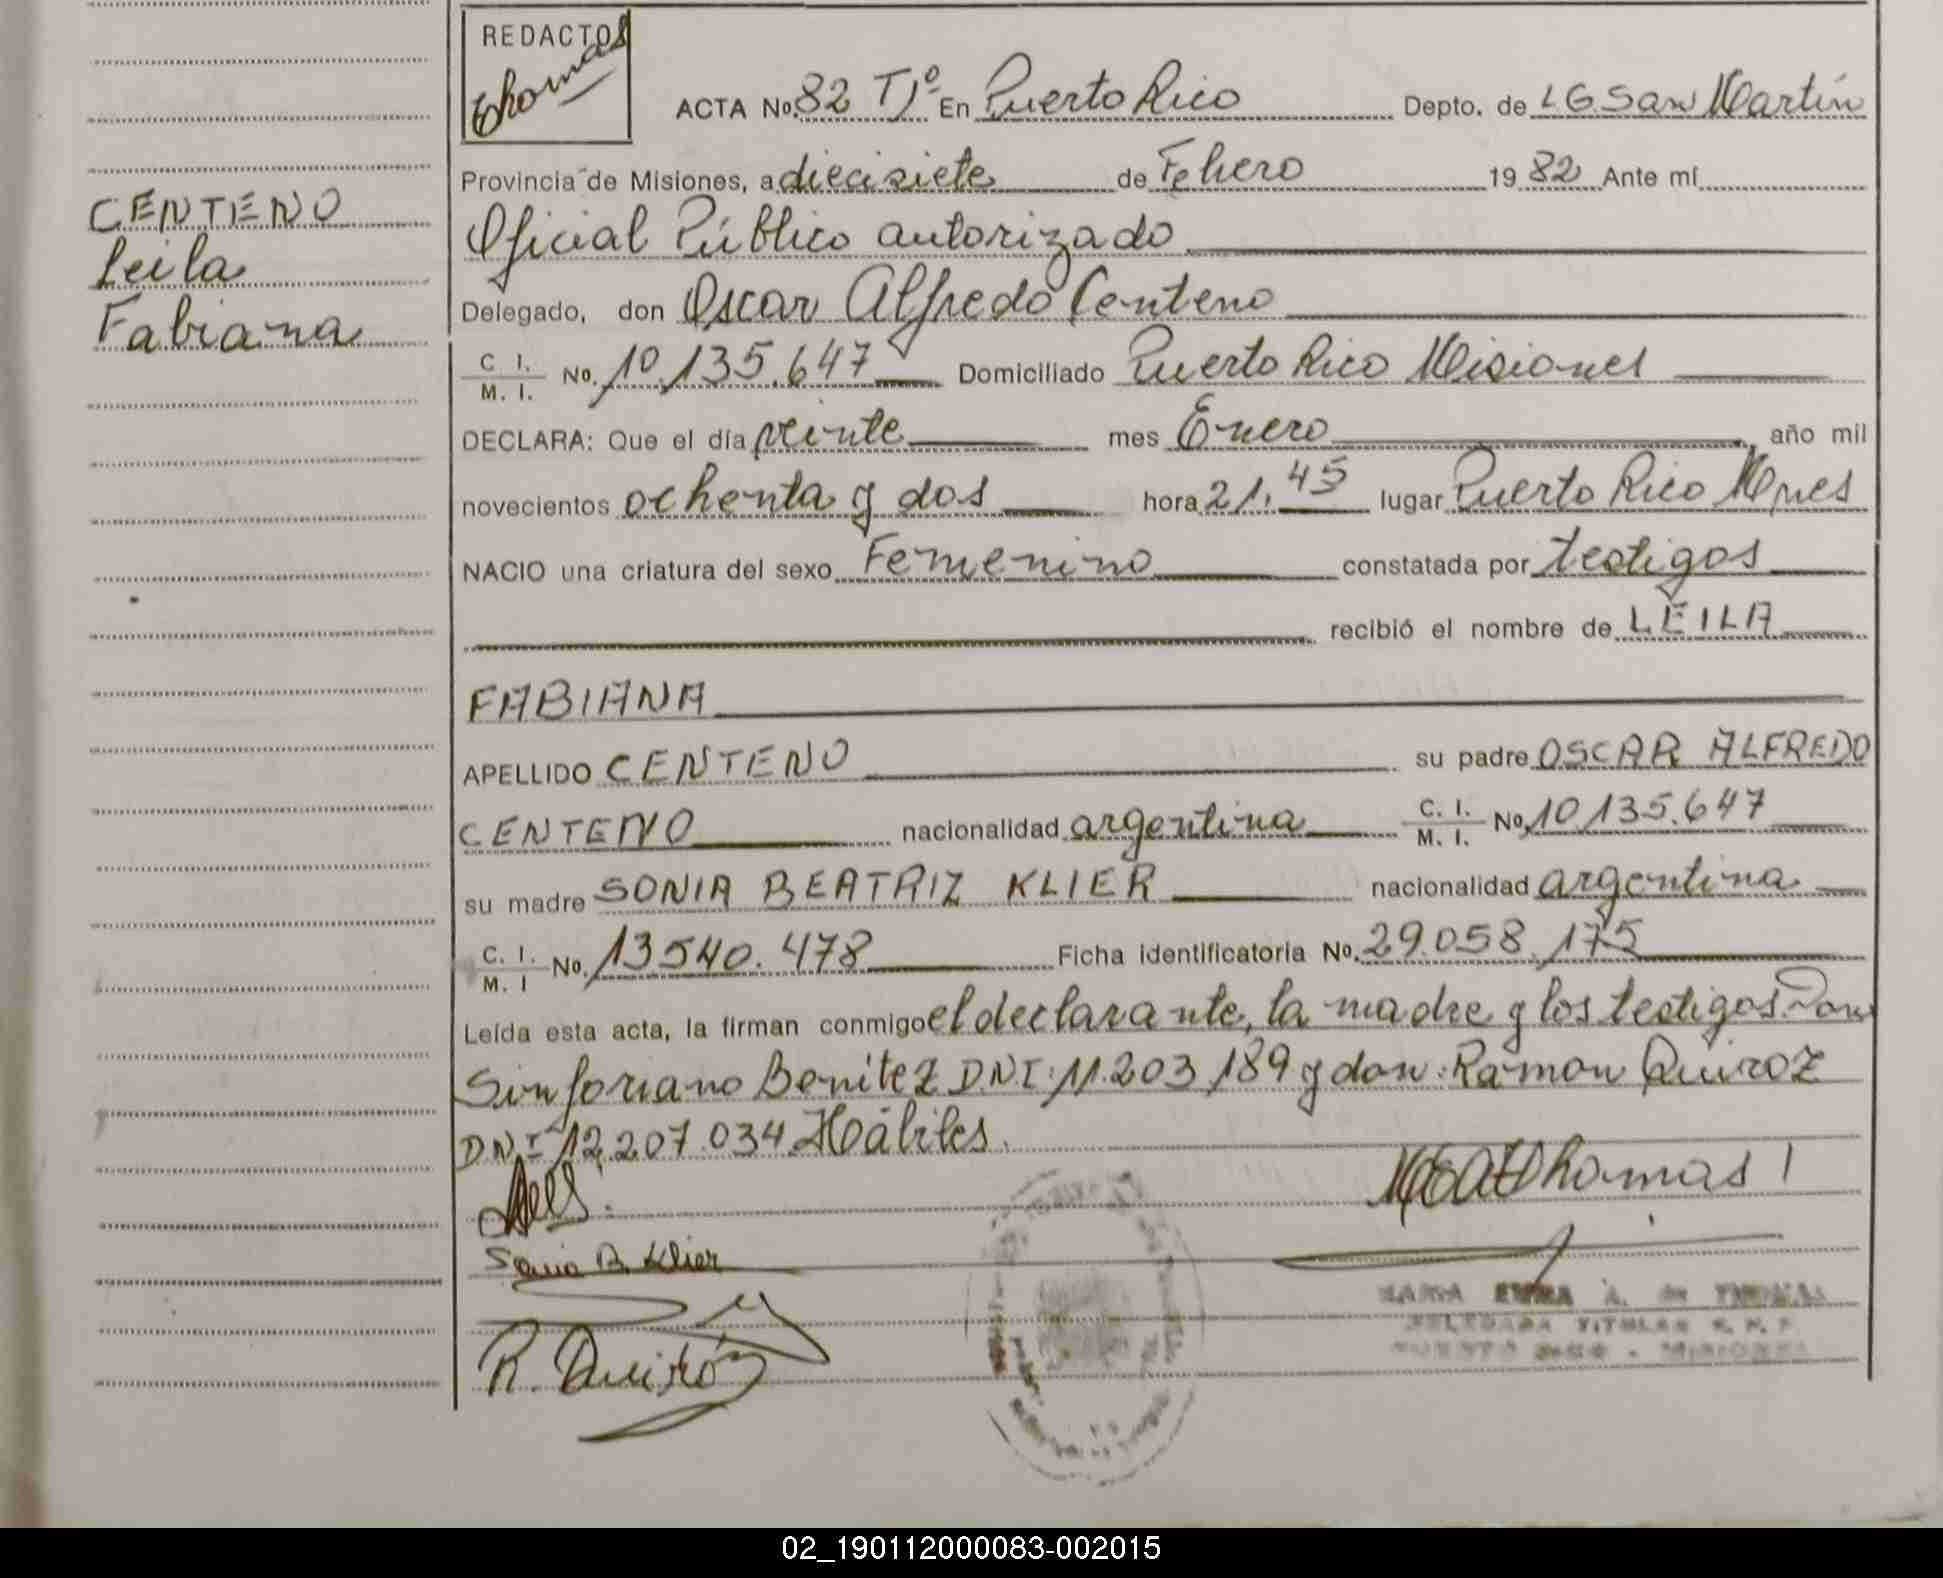 REDACTOS
Thomas
ACTA No. 82 Tº En Puerto Rico Depto. de LG San Martín
Provincia de Misiones, a diecisiete de Febrero 1982 Ante mí
CENTENO
Leila
Fabiana
Oficial Público autorizado
Delegado, don Oscar Alfredo Centeno
C. I.
M. I. No. 10.135.647 Domiciliado Puerto Rico Misiones
DECLARA: Que el día veinte mes Enero, año mil
novecientos ochenta y dos hora 21.45 lugar Puerto Rico Mnes
NACIO una criatura del sexo Femenino constatada por testigos
recibió el nombre de LEILA
FABIANA
APELLIDO CENTENO su padre OSCAR ALFREDO
CENTENO nacionalidad argentina C. I. M. I. No. 10.135.647
su madre SONIA BEATRIZ KLIER nacionalidad argentina
C. I. M. I No. 13540.478 Ficha identificatoria No. 29.058.175
Leída esta acta, la firman conmigo el declarante, la madre y los testigos Don
Sinforiano Benitez D.N.I. 11.203.189 y don: Ramon Quiroz
DNI 12.207.034 Hábiles.
Thomas
Sonia B. Klier
R. Quiróz
MARIA A. de THOMAS
DELEGADA TITULAR R. P.
PUERTO RICO - MISIONES
02_190112000083-002015